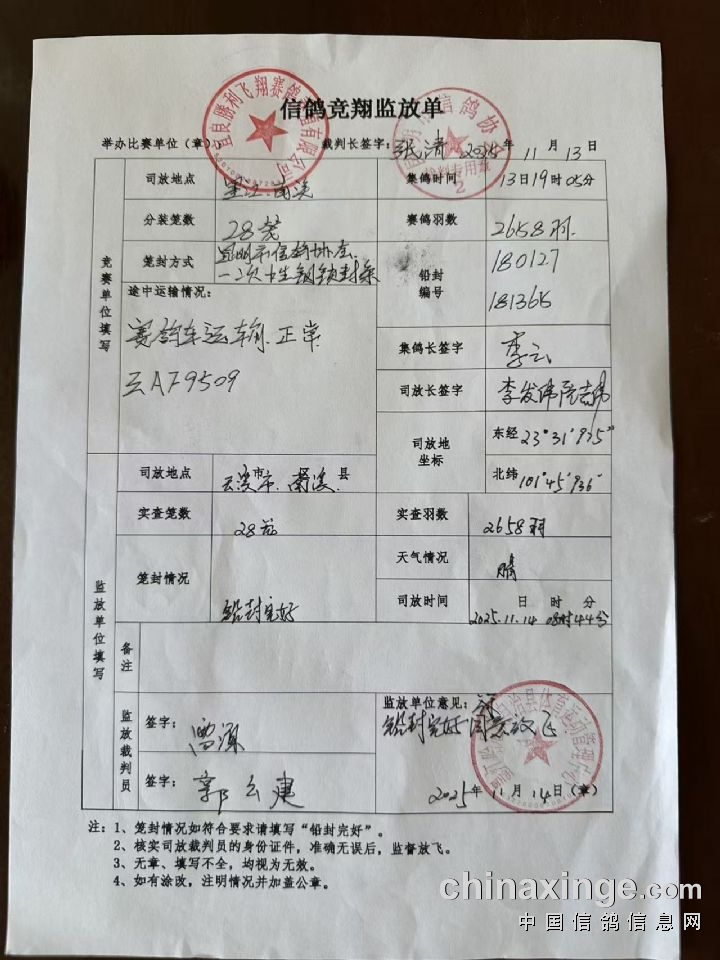 信鸽竞翔监放单
举办比赛单位（章）： 裁判长签字：张清 2025年11月13日
宜良勝利飞翔赛鸽 有限公司
信鸽协
裁判专用章
2
竞赛单位填写
司放地点 墨江.南溪 集鸽时间 13日19时05分
分装笼数 28笼 赛鸽羽数 2658羽.
笼封方式 昆明市信鸽协会.
一次性钢锁封条
铅封编号 180127
181365
途中运输情况：
赛鸽车运输正常
云AF9509
集鸽长签字 李云
司放长签字 李发伟
司放地坐标 东经 23°31'935"
北纬 101°45'936"
监放单位填写
司放地点 市 县
实查笼数 28笼 实查羽数 2658羽
笼封情况 铅封完好 天气情况 晴
司放时间 日 时 分
2025.11.14 08时44分
备注
监放裁判员
签字：
签字：郭云建
监放单位意见：
铅封完好同意放飞
2025年11月14日（章）
注：1、笼封情况如符合要求请填写“铅封完好”。
2、核实司放裁判员的身份证件，准确无误后，监督放飞。
3、无章、填写不全，均视为无效。
4、如有涂改，注明情况并加盖公章。
chinaxinge.com
中国信鸽信息网